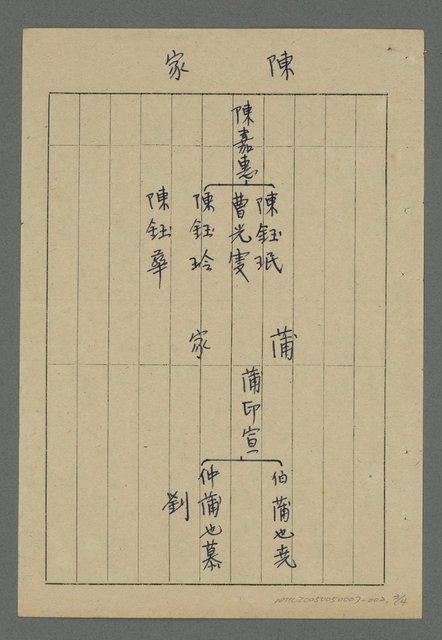 陳家
陳嘉惠
陳鈺珉
曹光雯
陳鈺玲
陳鈺華
蒲家
蒲印宣
伯 蒲也堯
仲 蒲也慕
劉